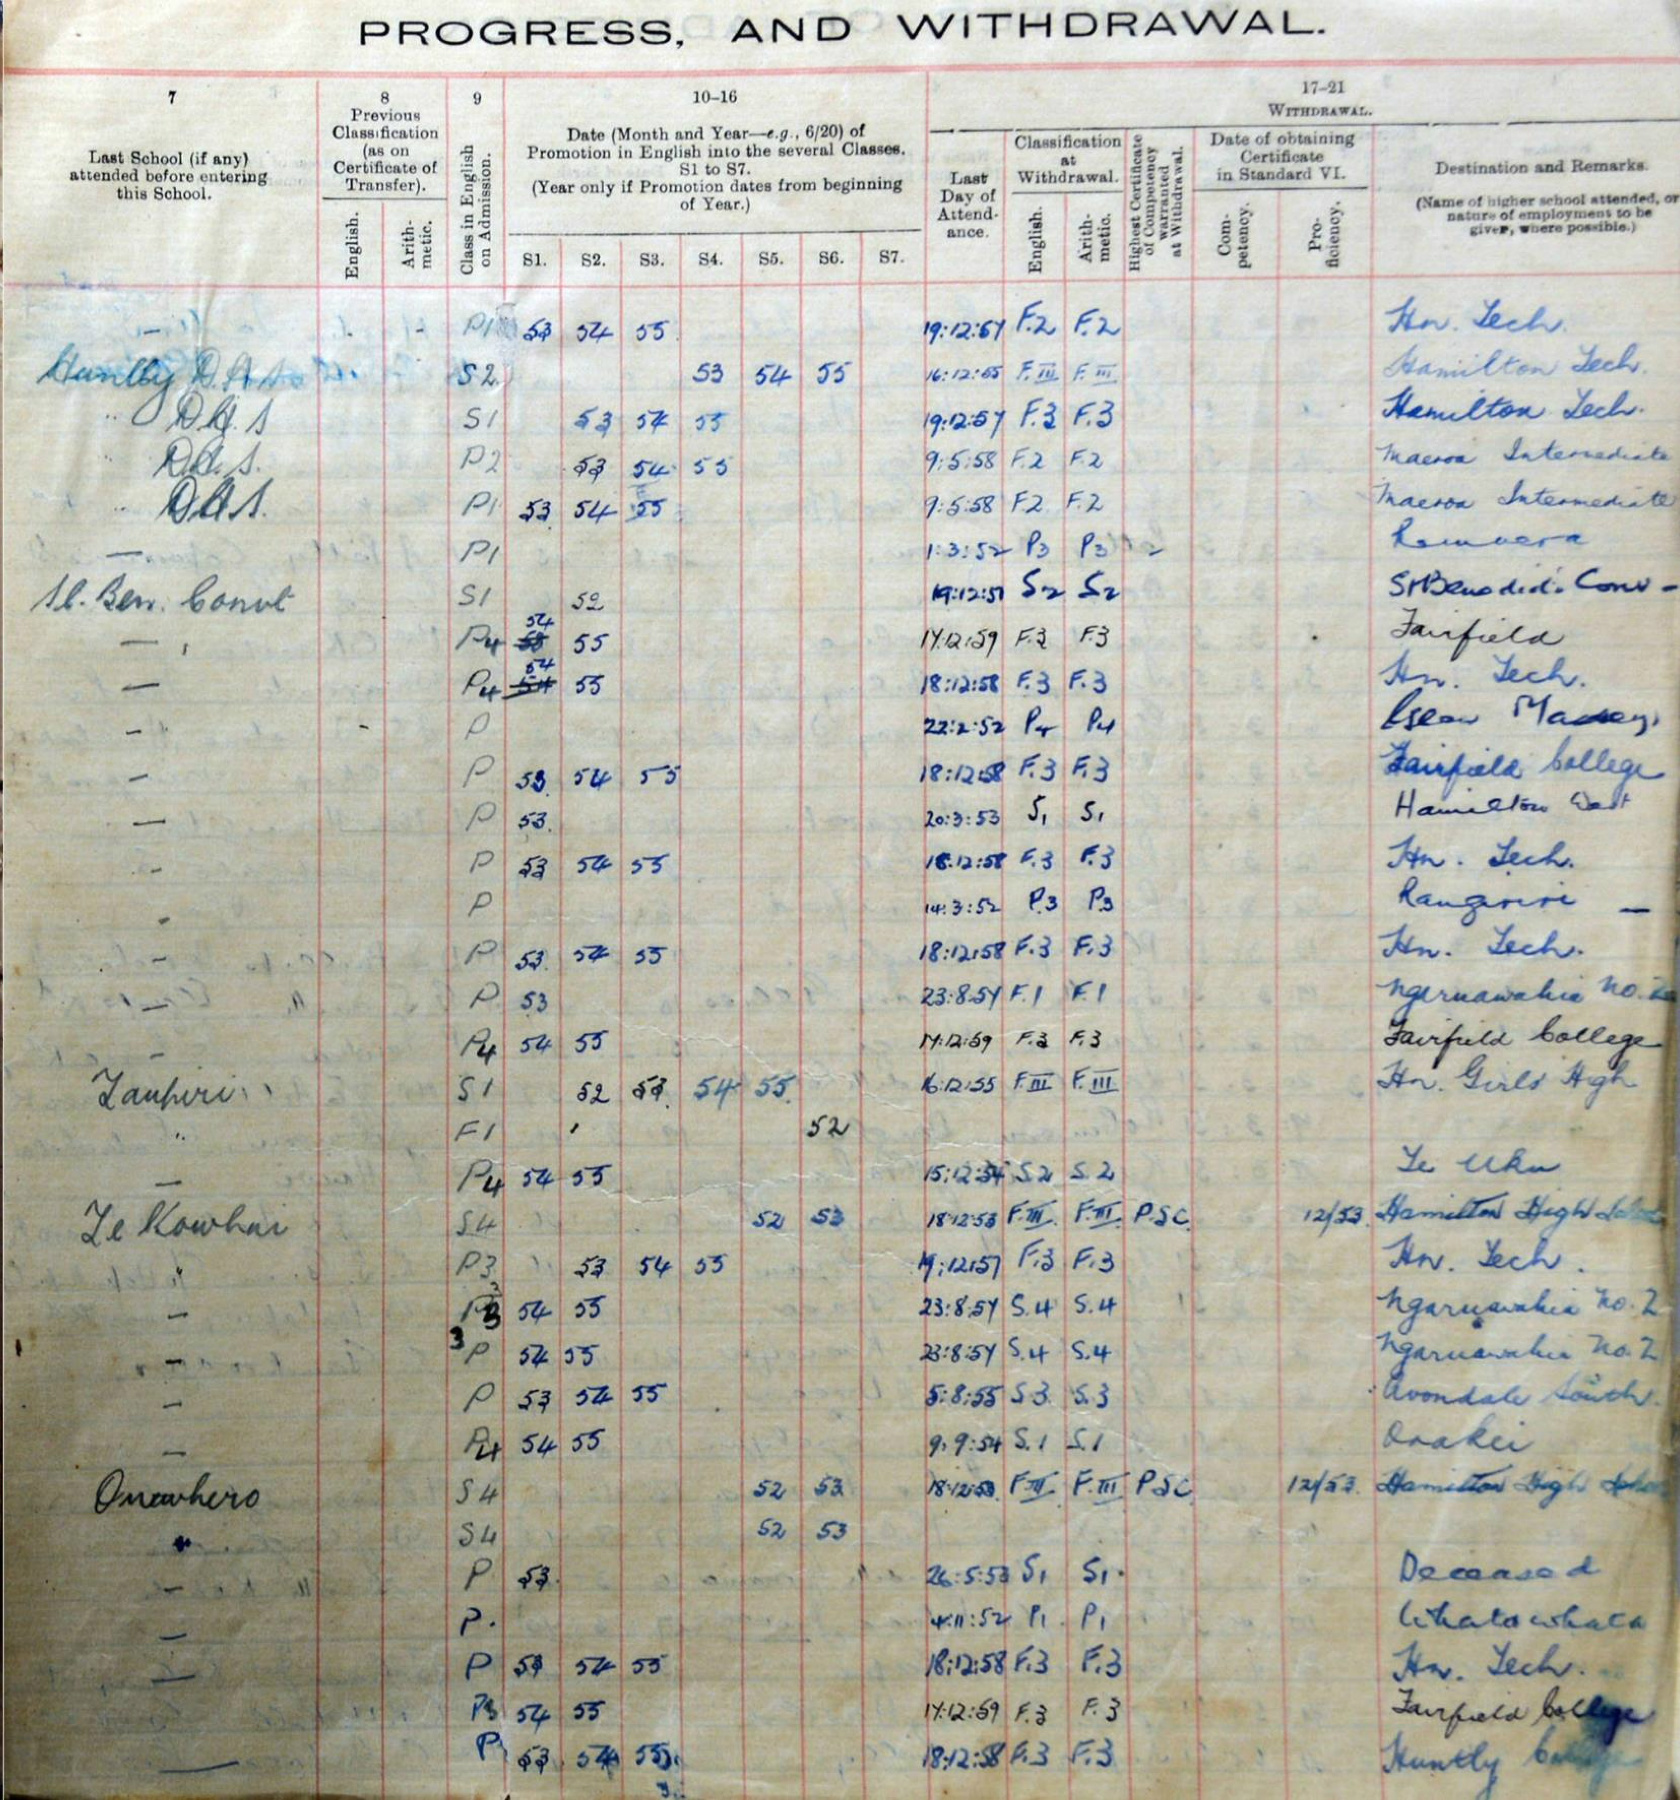 PROGRESS, AND WITHDRAWAL.
7
Last School (if any) attended before entering this School.
8
Previous Classification (as on Certificate of Transfer).
English.
Arithmetic.
9
Class in English on Admission.
10–16
Date (Month and Year—e.g., 6/20) of Promotion in English into the several Classes. S1 to S7. (Year only if Promotion dates from beginning of Year.)
S1. S2. S3. S4. S5. S6. S7.
17–21
WITHDRAWAL.
Last Day of Attendance.
Classification at Withdrawal.
English.
Arithmetic.
Highest Certificate of Competency warranted at Withdrawal.
Date of obtaining Certificate in Standard VI.
Competency.
Proficiency.
Destination and Remarks.
(Name of higher school attended, or nature of employment to be given, where possible.)
— P1 53 54 55 19:12:57 F.2 F.2 Hn. Tech.
Huntly D.H.S S2 53 54 55 16:12:55 F.III F.III Hamilton Tech.
" D.H.S S1 53 54 55 19:12:57 F.3 F.3 Hamilton Tech.
D.H.S. P2 53 54 55 9:5:58 F.2 F.2 Maeroa Intermediate
" D.H.S. P1 53 54 55 9:5:58 F.2 F.2 Maeroa Intermediate
— P1 1:3:52 P3 P3 Remuera
St. Ben. Convt S1 52 19:12:51 S2 S2 St Benedict's Conv -
— P4 54 55 17:12:59 F.3 F.3 Fairfield
— P4 54 55 18:12:58 F.3 F.3 Hn. Tech.
— P 22:2:52 P4 P4 Massey
— P 53 54 55 18:12:58 F.3 F.3 Fairfield College
— P 53. 20:3:53 S1 S1 Hamilton West
- P 53 54 55 18:12:58 F.3 F.3 Hn. Tech.
- P 14:3:52 P.3 P3 Rangiriri —
- P 53. 54 55 18:12:58 F.3 F.3 Hn. Tech.
— P 53 23:8:57 F.1 F.1 Ngaruawahia No. 2
— P4 54 55 17:12:59 F.3 F.3 Fairfield College
Taupiri S1 52 53 54 55 16:12:55 F.III F.III Hn. Girls High
" F1 52
— P4 54 55 15:12:54 S.2 S.2 Te Uku
Te Kowhai S4 52 53 18:12:53 F.III F.III P.S.C. 12/53 Hamilton High School
" P3 53 54 55 19:12:57 F.3 F.3 Hn. Tech.
— P3 54 55 23:8:57 S.4 S.4 Ngaruawahia No. 2
— 3 P 54 55 23:8:57 S.4 S.4 Ngaruawahia No. 2
— P 53 54 55 5:8:55 S.3 S.3 Avondale South.
— P4 54 55 9:9:54 S.1 S.1 Orakei
Onewhero S4 52 53 18:12:53 F.III F.III P.S.C. 12/53. Hamilton High School
" S4 52 53
— P 53. 26:5:53 S1 S1. Deceased
— P. 4:11:52 P1 P1 Whatawhata
— P 53 54 55 18:12:58 F.3 F.3 Hn. Tech.
— P3 54 55 17:12:59 F.3 F.3 Fairfield College
— P 53 54 55 18:12:58 F.3 F.3 Huntly College